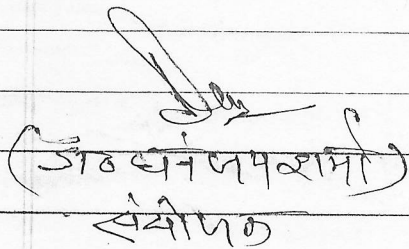 (डा० धनंजय शर्मा)
संयोजक